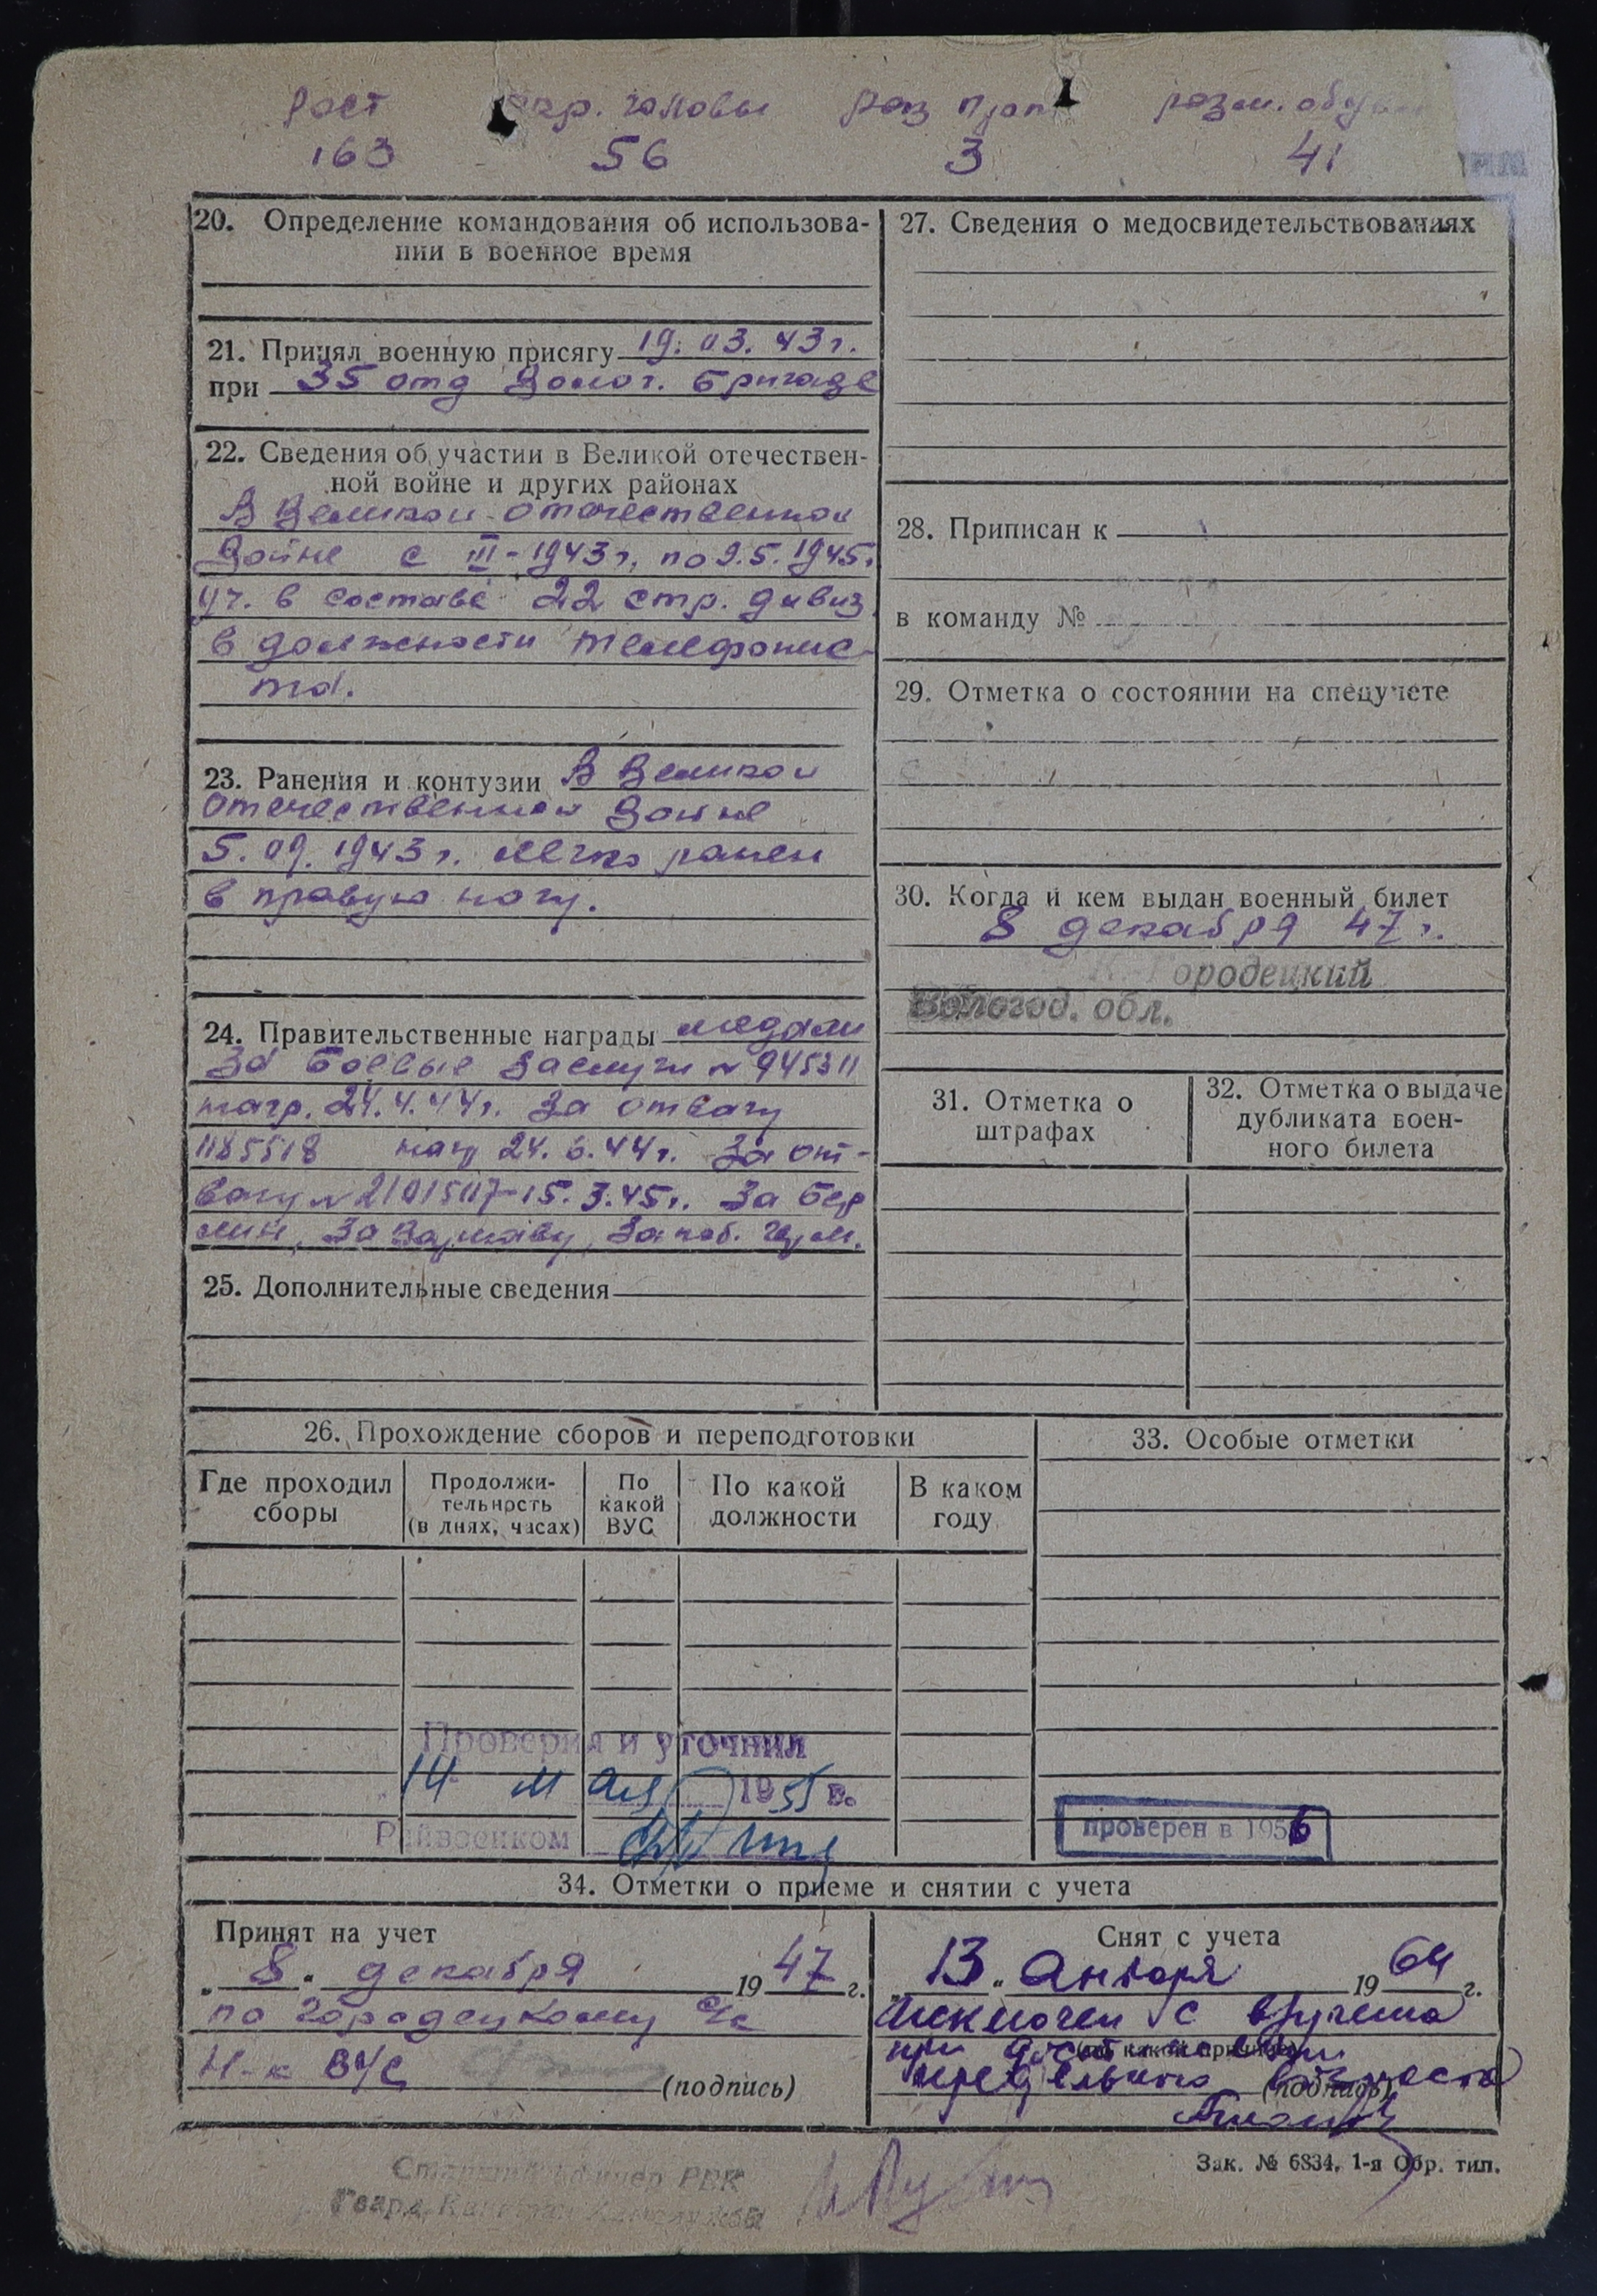 Рост окр. головы раз прот разм. обуви
163 56 3 41
20. Определение командования об использова-
нии в военное время
21. Принял военную присягу 19. 03. 43 г.
при 35 отд Золот. бригаде
22. Сведения об участии в Великой отечествен-
ной войне и других районах
В Великой отечественной
войне с III-1943 г, по 9.5.1945.
уч. в составе 22 стр. дивиз
в должности телефонис-
та.
23. Ранения и контузии В Великой
отечественной войне
5. 09. 1943 г. легко ранен
в правую ногу.
24. Правительственные награды медали
За боевые заслуги № 945311
нагр. 24.4.44 г. За отвагу
1185518 наг 24. 6. 44 г. За от-
вагу № 2101507-15. 3. 45 г. За Бер
лин, За Варшаву, За поб. Герм.
25. Дополнительные сведения
27. Сведения о медосвидетельствованиях
28. Приписан к
в команду №
29. Отметка о состоянии на спецучете
30. Когда и кем выдан военный билет
8 декабря 47 г.
К-Городецкий
Вологод. обл.
31. Отметка о
штрафах
32. Отметка о выдаче
дубликата воен-
ного билета
26. Прохождение сборов и переподготовки
Где проходил
сборы
Продолжи-
тельность
(в днях, часах)
По
какой
ВУС
По какой
должности
В каком
году
Проверил и уточнил
14 мая 1955 г.
Райвоенком
33. Особые отметки
проверен в 1956
34. Отметки о приеме и снятии с учета
Принят на учет
„8" декабря 1947 г.
по Городецкому с/с
Н-к ВУС
(подпись)
Снят с учета
„13" Января 1964 г.
Исключен с в/учета
при достижении
(по какой причине)
предельного возраста
(подпись)
Зак. № 6834, 1-я Обр. тип.
Гвард. Капитан